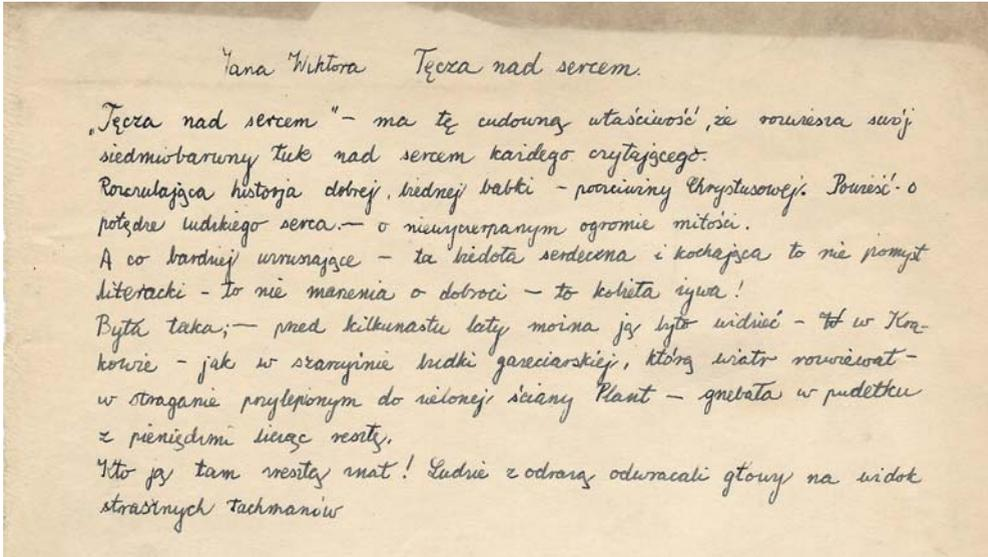 Jana Wiktora Tęcza nad sercem.
„Tęcza nad sercem" – ma tę cudowną właściwość, że rozwiesza swój
siedmiobarwny łuk nad sercem każdego czytającego.
Rozczulająca historja dobrej, biednej babki – poczciwiny Chrystusowej. Powieść o
potędze ludzkiego serca – o niewyczerpanym ogromie miłości.
A co bardziej wzruszające – ta biedota serdeczna i kochająca to nie pomysł
literacki – to nie marzenia o dobroci – to kobieta żywa!
Była taka; – przed kilkunastu laty można ją było widzieć – w Kra-
kowie – jak w szarzyźnie budki gazeciarskiej, którą wiatr rozwiewał –
w straganie przylepionym do zielonej ściany Plant – grzebała w pudełku
z pieniędzmi licząc resztę.
Kto ją tam zresztą znał! Ludzie z odrazą odwracali głowy na widok
strasznych łachmanów